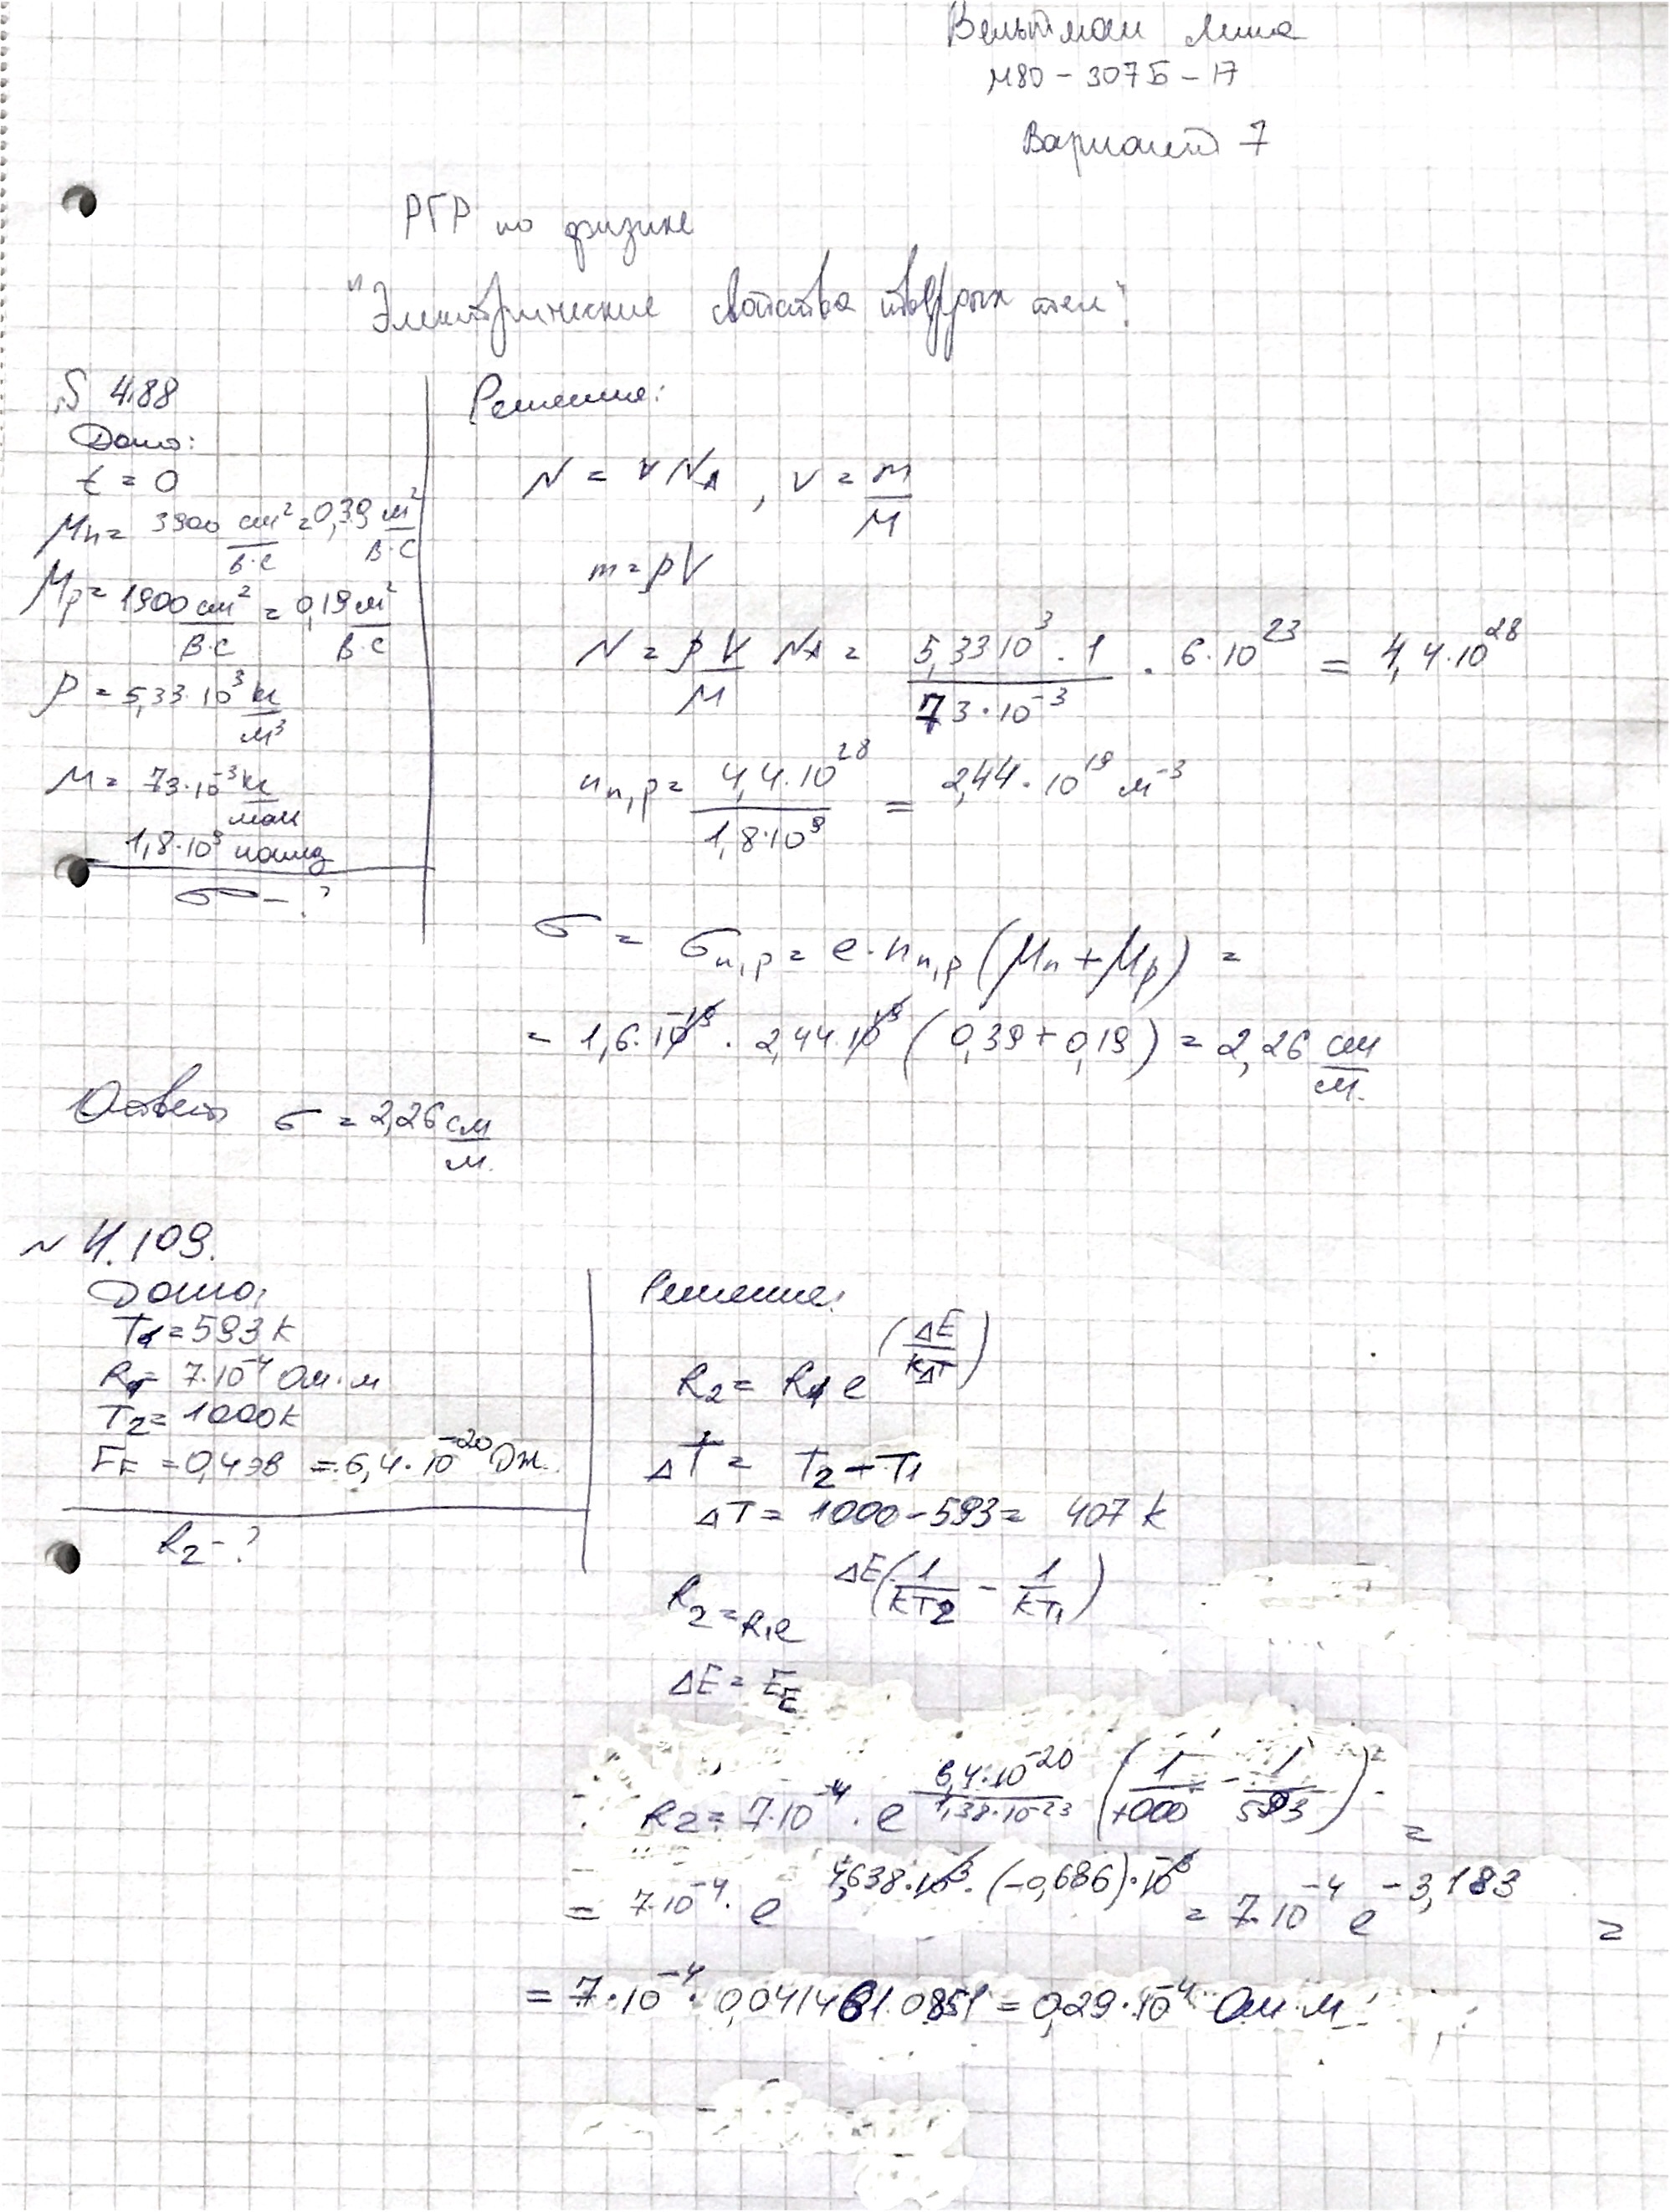 Вельтман Лина
М80-307Б-17
Вариант 7
РГР по физике
"Электрические свойства твёрдых тел".
§ 4.88
Дано:
t = 0
μn = 3900 см²/В·с = 0,39 м²/В·с
μp = 1900 см²/В·с = 0,19 м²/В·с
ρ = 5,33·10³ кг/м³
M = 73·10⁻³ кг/моль
1,8·10⁹
σ - ?
Решение:
N = ν NA , ν = m/M
m = ρV
N = ρV/M NA = 5,33 10³ · 1 / 73·10⁻³ · 6·10²³ = 4,4·10²⁸
nn,p = 4,4·10²⁸ / 1,8·10⁹ = 2,44·10¹⁹ м⁻³
σ = σn,p = e·nn,p (μn + μp) =
= 1,6·10⁻¹⁹ · 2,44·10¹⁹ (0,39 + 0,19) = 2,26 См/м.
Ответ σ = 2,26 См/м.
N 4.109.
Дано:
T1 = 593 К
R1 = 7·10⁻⁴ Ом·м
T2 = 1000 К
EE = 0,4 эВ = 6,4·10⁻²⁰ Дж.
R2 - ?
Решение:
R2 = R1 e^(ΔE/kΔT)
ΔT = T2 - T1
ΔT = 1000 - 593 = 407 К
R2 = R1e^ΔE(1/kT2 - 1/kT1)
ΔE = EE
R2 = 7·10⁻⁴ · e^6,4·10⁻²⁰/1,38·10⁻²³ (1/1000 - 1/593) =
= 7·10⁻⁴ · e^4,638·10³·(-0,686)·10⁻³ = 7·10⁻⁴ e^-3,183 =
= 7·10⁻⁴ · 0,041461.0851 = 0,29·10⁻⁴ Ом·м